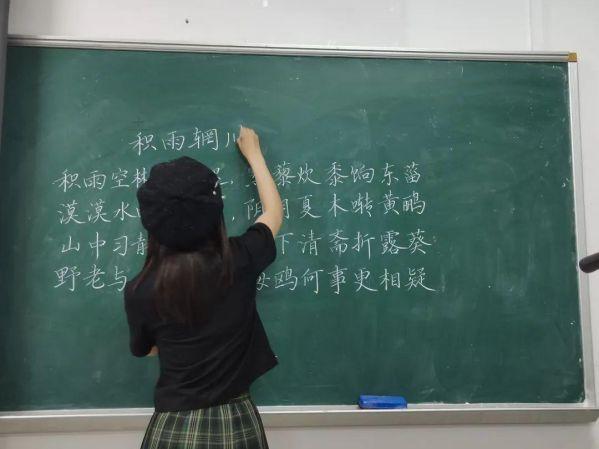 积雨辋川
积雨空林 , 蒸藜炊黍饷东菑
漠漠水 , 阴阴夏木啭黄鹂
山中习静 下清斋折露葵
野老与 海鸥何事更相疑